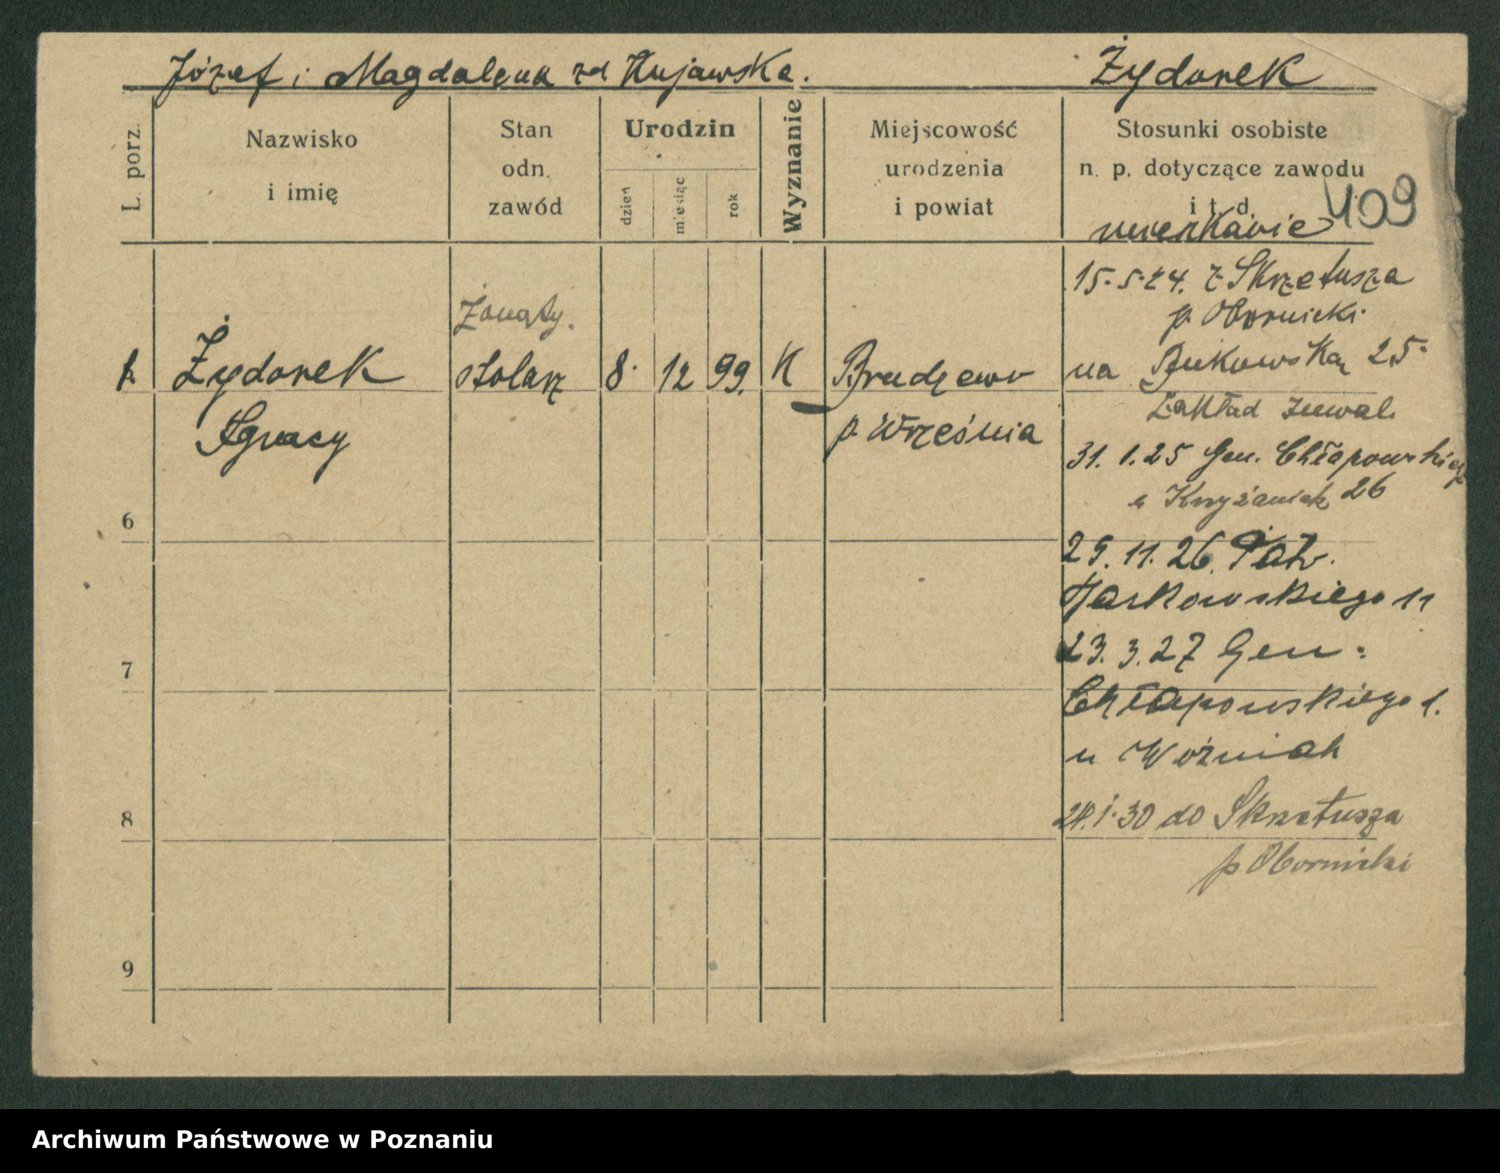 Józef i Magdalena zd Kujawska.
Żydorek
L. porz.
Nazwisko
i imię
Stan
odn.
zawód
Urodzin
dzień
miesiąc
rok
Wyznanie
Miejscowość
urodzenia
i powiat
Stosunki osobiste
n. p. dotyczące zawodu
i t. d.
409
15.5.24. z Skrzetusza
p. Obornicki
Żonaty.
1. Żydorek stolarz 8. 12 99. K Brudzewo na Bukowską 25.
Ignacy p. Września
Zakład Inwal.
31. 1. 25 Gen. Chłapowskiego
u Krzyżaniak 26
6
29. 11. 26. Patr.
Jackowskiego 11
23. 3. 27 Gen:
7
Chłapowskiego 1.
u Woźniak
8
28. 1. 30 do Skrzetusza
p Obornicki
9
Archiwum Państwowe w Poznaniu